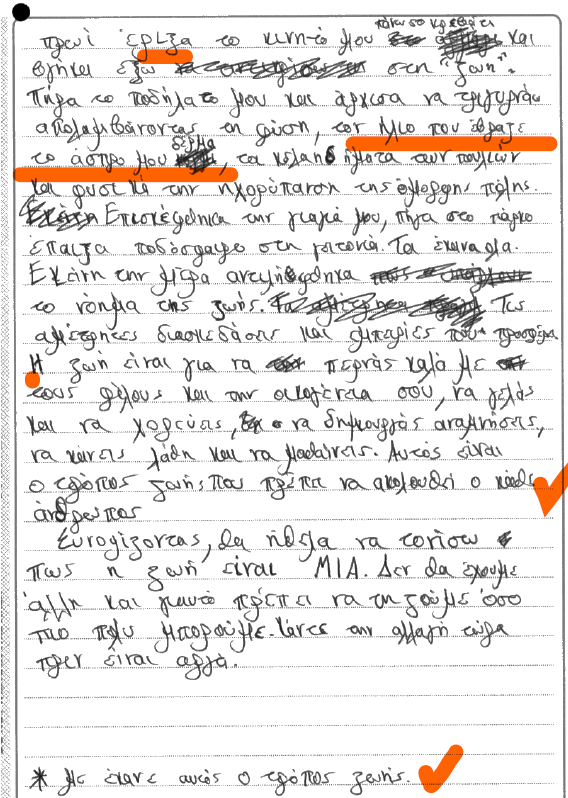 πάνω στο κρεβάτι
πρωί έριξα το κινητό μου και
βγήκα έξω στη "ζωή".
Πήγα το ποδήλατό μου και άρχισα να τριγυρνάω
απολαμβάνοντας τη φύση, τον ήλιο που έβραζε
δέρμα
το άσπρο μου , τα κελαηδήματα των πουλιών
και φυσικά την ηχορύπανση της όμορφης πόλης.
Επισκέφθηκα την γιαγιά μου, πήγα στο πάρκο
έπαιξα ποδόσφαιρο στη γειτονιά. Τα έκανα όλα.
Εκείνη την μέρα αντιλήφθηκα
το νόημα της ζωής. Τις
αμέτρητες διασκεδάσεις και εμπειρίες που* προσφέρει
Η ζωή είναι για να περνάς καλά με
τους φίλους και την οικογένεια σου, να γελάς
και να χορεύεις, να δημιουργάς αναμνήσεις,
να κάνεις λάθη και να μαθαίνεις. Αυτός είναι
ο τρόπος ζωής που πρέπει να ακολουθεί ο κάθε
άνθρωπος
Ευνοψίζοντας, θα ήθελα να τονίσω
πως η ζωή είναι ΜΙΑ. Δεν θα έχουμε
άλλη και γιαυτό πρέπει να τη ζούμε όσο
πιο πολύ μπορούμε. Κάντε την αλλαγή τώρα
πριν είναι αργά.
* Με έκανε αυτός ο τρόπος ζωής.